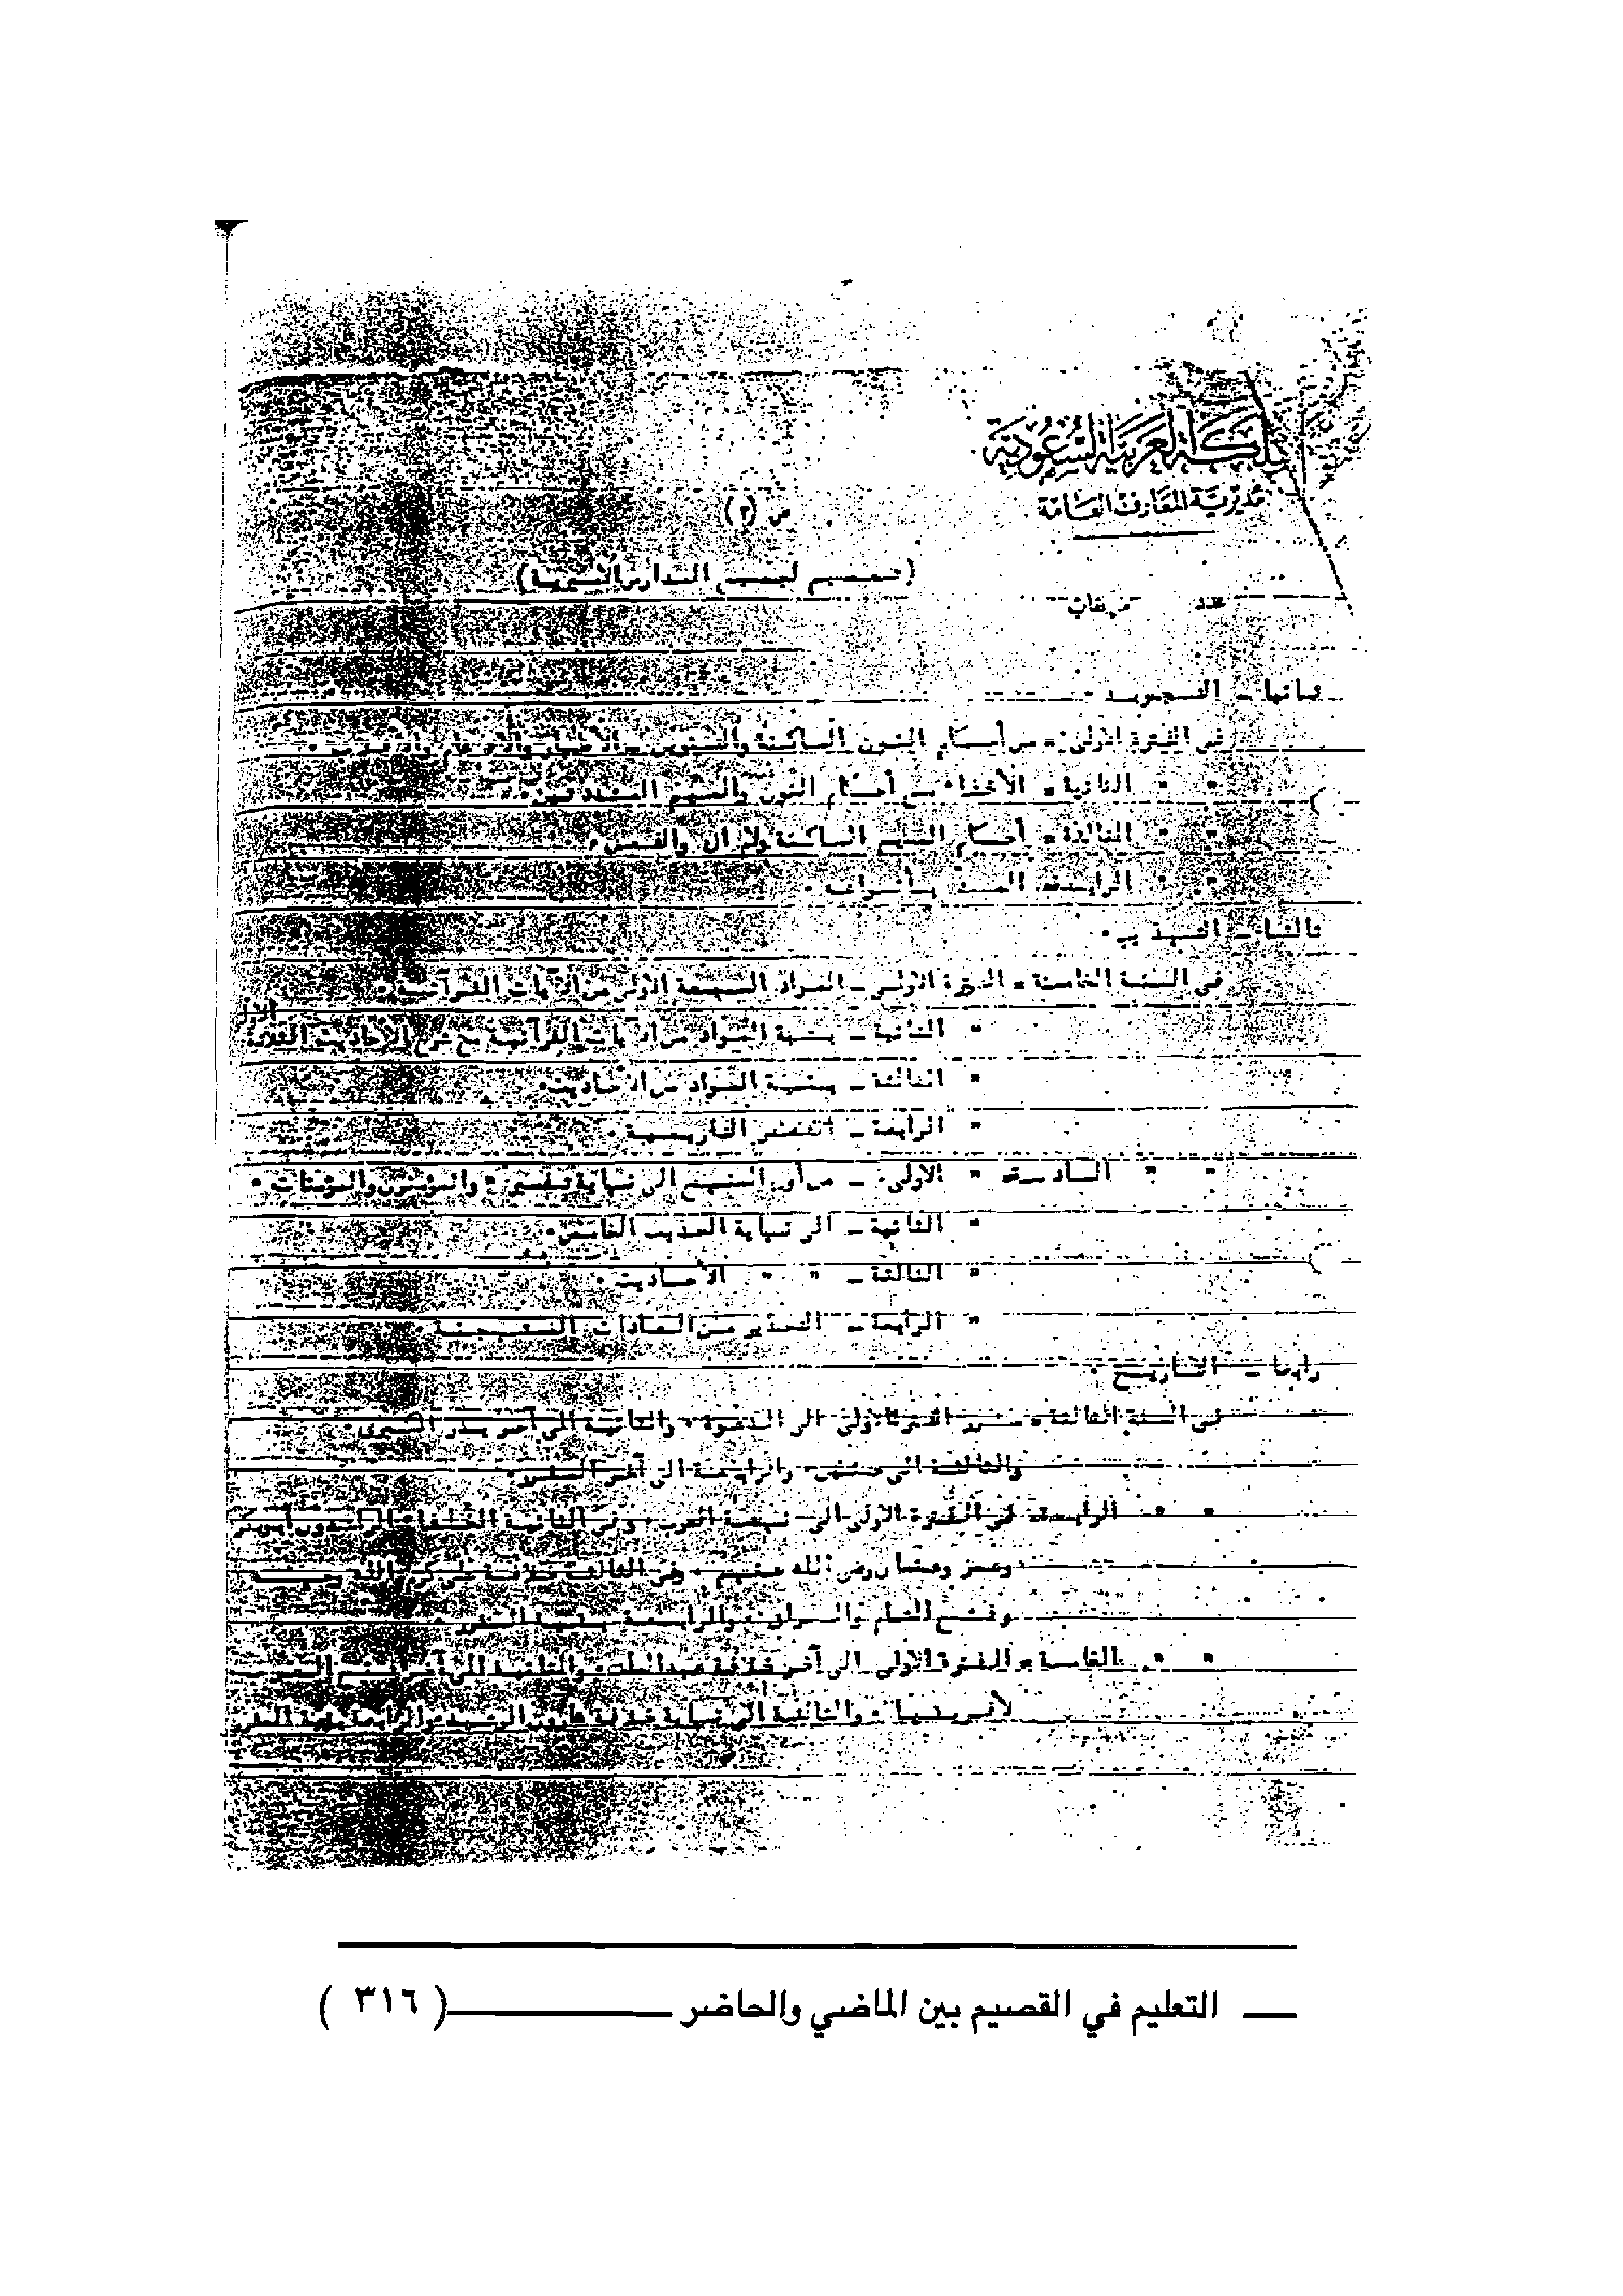 المملكة العربية السعودية
مديرية المعارف العامة
ص (٢)
(تعميم لجميع المدارس الأميرية)
عدد مرفقات
ثانيا ـ التجويد
في الفترة الأولى = من أحكام النون الساكنة والتنوين
" " الثانية = الأخفاء ـ أحكام النون والميم المشددتين .
" " الثالثة = أحكام الميم الساكنة ولام ال والفعل .
" " الرابعة = المد بأنواعه .
ثالثا ـ التهذيب .
في السنة الخامسة = الفترة الاولى ـ المواد السبعة الاولى من الآيات القرآنية .
" الثانية ـ بقية المواد من الآيات القرآنية مع شرح الاحاديث الثلاثة
" الثالثة ـ بقية المواد من الأحاديث .
" الرابعة ـ القصص التاريخية .
" " السادسة " الاولى ـ من أول المنهج الى نهاية تفسير " والمؤمنون والمؤمنات "
" الثانية ـ الى نهاية الحديث الخامس .
" الثالثة ـ " " الأحاديث .
" الرابعة ـ التحذير من العادات القبيحة .
رابعا ـ التاريخ .
في السنة الثالثة = مقرر الفترة الأولى الى الدعوة . والثانية الى آخر بدر الكبرى .
والثالثة الى حنين . والرابعة الى آخر المقرر .
" " الرابعة في الفترة الاولى الى وفي الثانية الخلفاء الراشدون أبوبكر
وعمر وعثمان رضي الله عنهم . وفي الثالثة خلافة علي كرم الله وجهه
وفتح الشام والعراق . والرابعة بقية المقرر .
" " الخامسة = الفترة الأولى الى آخر خلافة عبدالملك . والثانية الى آخر
لأفريقيا . والثالثة الى نهاية خلافة هارون الرشيد . والرابعة بقية المقرر
التعليم في القصيم بين الماضي والحاضر ( ٣١٦ )